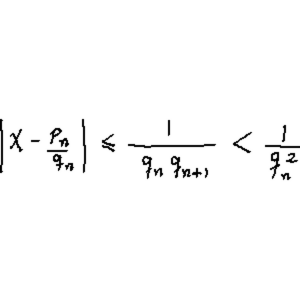 $\left| x - \frac{p_n}{q_n} \right| \leqslant \frac{1}{q_n q_{n+1}} < \frac{1}{q_n^2}$